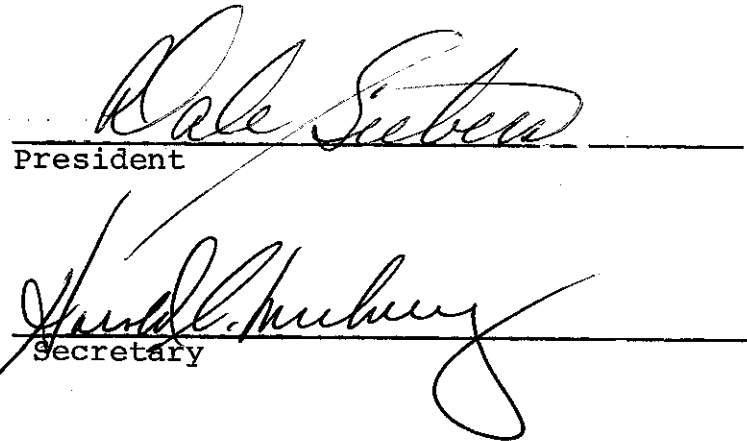 Dale Siebens
President
Harold C.
Secretary